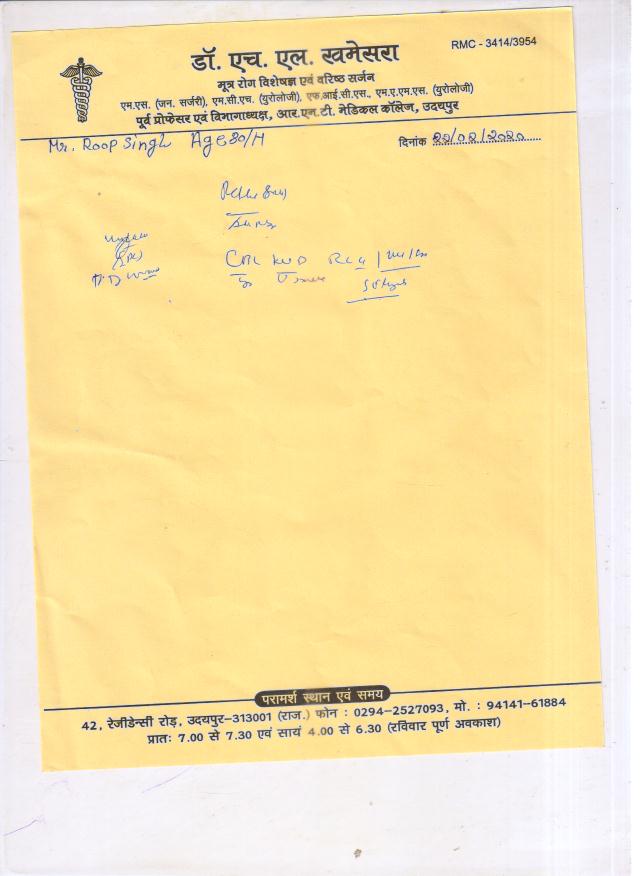 RMC - 3414/3954
डॉ. एच. एल. खमेसरा
मूत्र रोग विशेषज्ञ एवं वरिष्ठ सर्जन
एम.एस. (जन. सर्जरी), एम.सी.एच. (युरोलोजी), एफ.आई.सी.एस., एम.ए.एम.एस. (युरोलोजी)
पूर्व प्रोफेसर एवं विभागाध्यक्ष, आर.एन.टी. मेडिकल कॉलेज, उदयपुर
Mr. Roop Singh Age 80/M
दिनांक 22/02/2020
परामर्श स्थान एवं समय
42, रेजीडेन्सी रोड़, उदयपुर-313001 (राज.) फोन : 0294-2527093, मो. : 94141-61884
प्रातः 7.00 से 7.30 एवं सायं 4.00 से 6.30 (रविवार पूर्ण अवकाश)